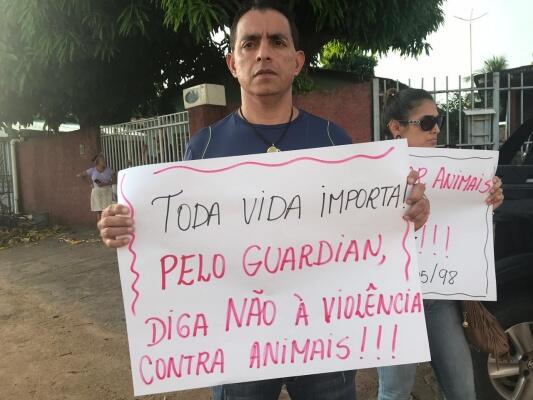 TODA VIDA IMPORTA!
PELO GUARDIAN,
DIGA NÃO À VIOLÊNCIA
CONTRA ANIMAIS!!!
ANIMAIS
!!!
5/98